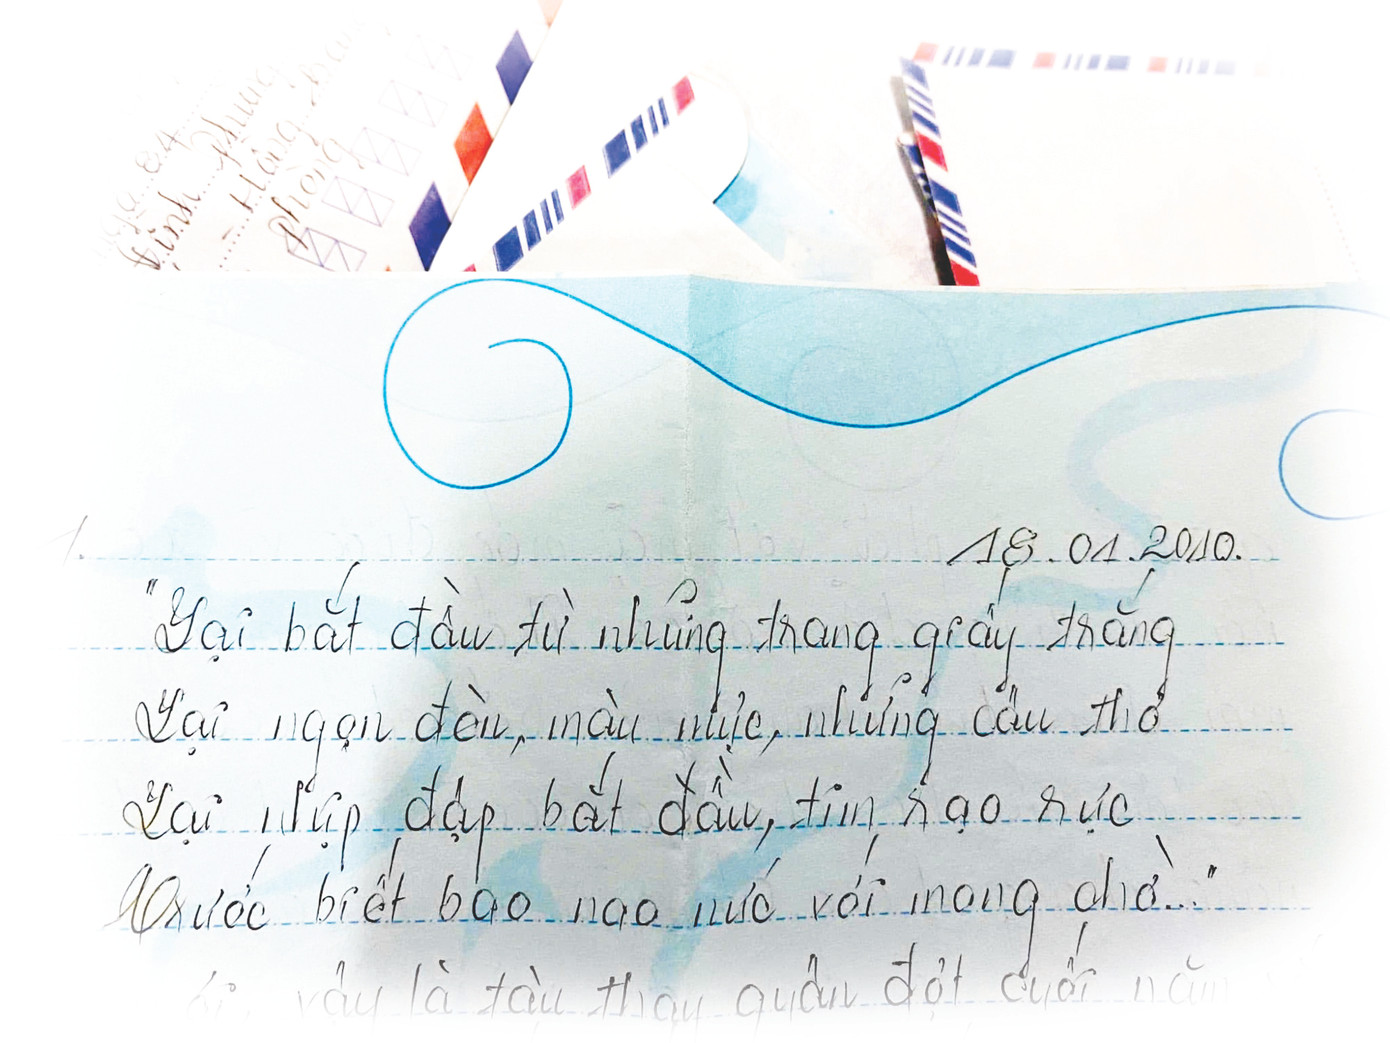 84
Đình Phùng
Hồng Bàng
Phòng
1.
18.01.2010.
"Lại bắt đầu từ những trang giấy trắng
Lại ngọn đèn, màu mực, những câu thơ
Lại nhịp đập bắt đầu, tim rạo rực
Trước biết bao nao nức với mong chờ..."
vậy là tàu thay quân đợt cuối năm